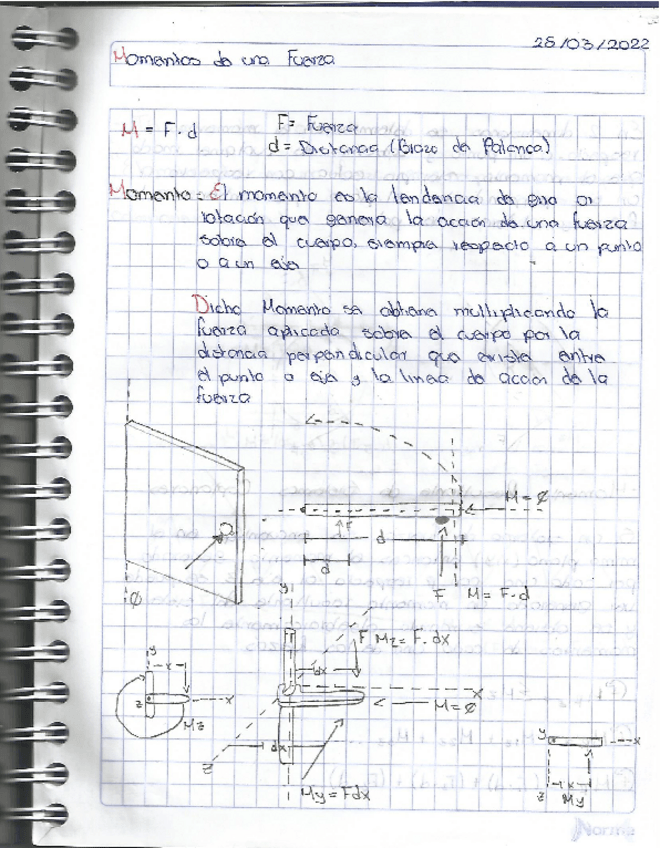 25/03/2022
Momentos de una Fuerza
M = F·d
F = Fuerza
d = Distancia (Brazo de Palanca)
Momento: El momento es la tendencia de giro o
rotación que genera la acción de una fuerza
sobre el cuerpo, siempre respecto a un punto
o a un eje
Dicho Momento se obtiene multiplicando la
fuerza aplicada sobre el cuerpo por la
distancia perpendicular que existe entre
el punto o eje y la linea de accion de la
fuerza
M=Ø
F
d
d
Ø
F M=F·d
y
F Mz=F·dx
dx
y
x
x
z
Mz
x
M=Ø
dx
z
My=Fdx
y
x
x
z
My
Norma